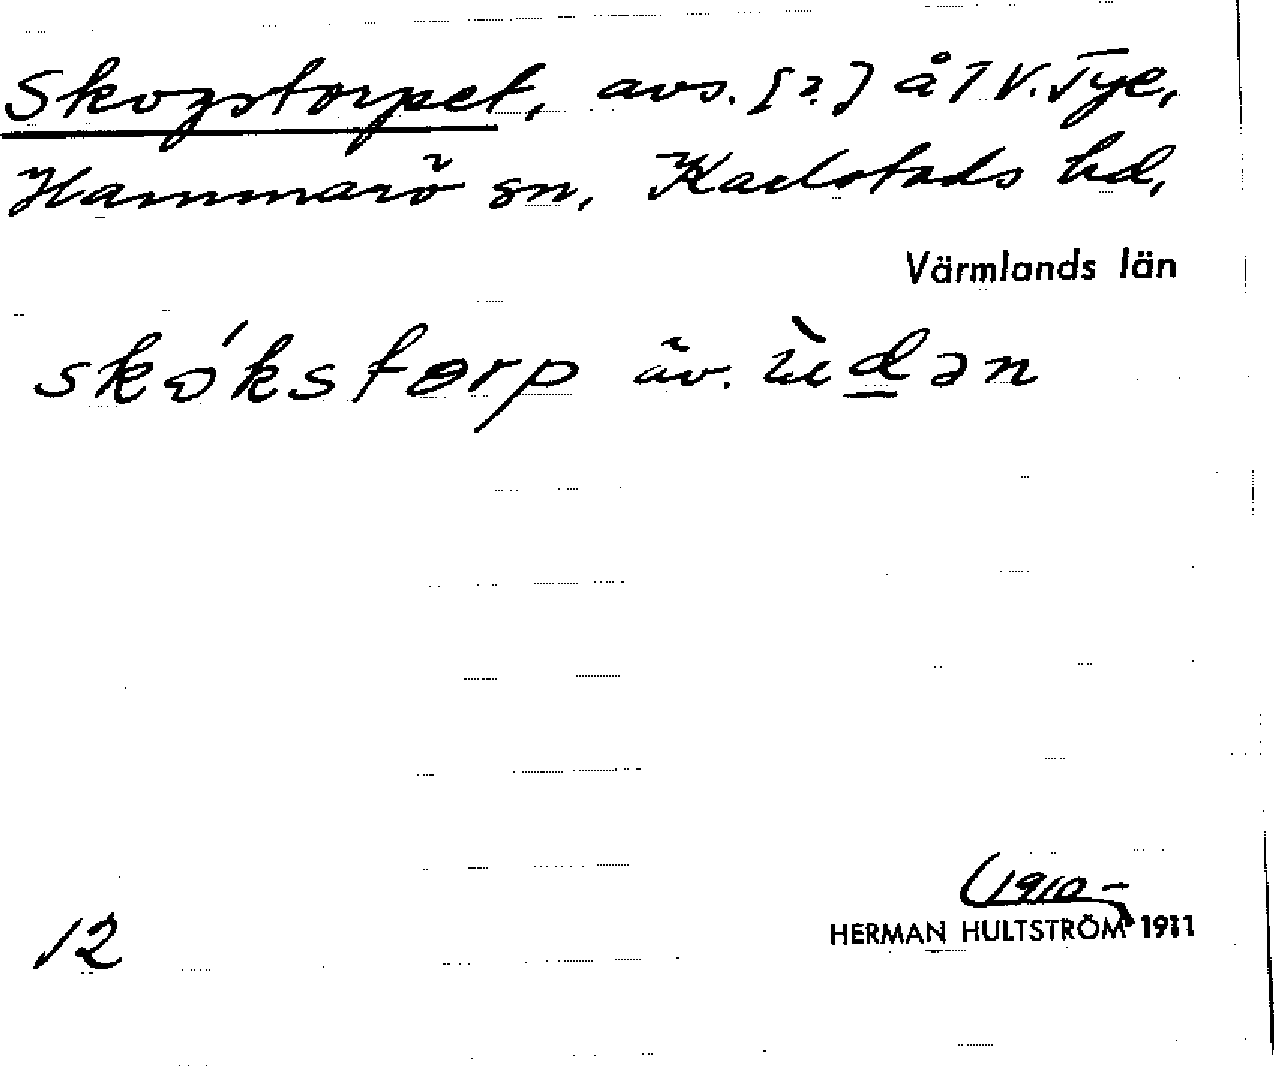 Skogstorpet, avs. [?] å 1 V. Tye,
Hammarö sn, Karlstads hd,
Värmlands län
skókstorp äv. ùdən
12
(1910–)
HERMAN HULTSTRÖM 1911